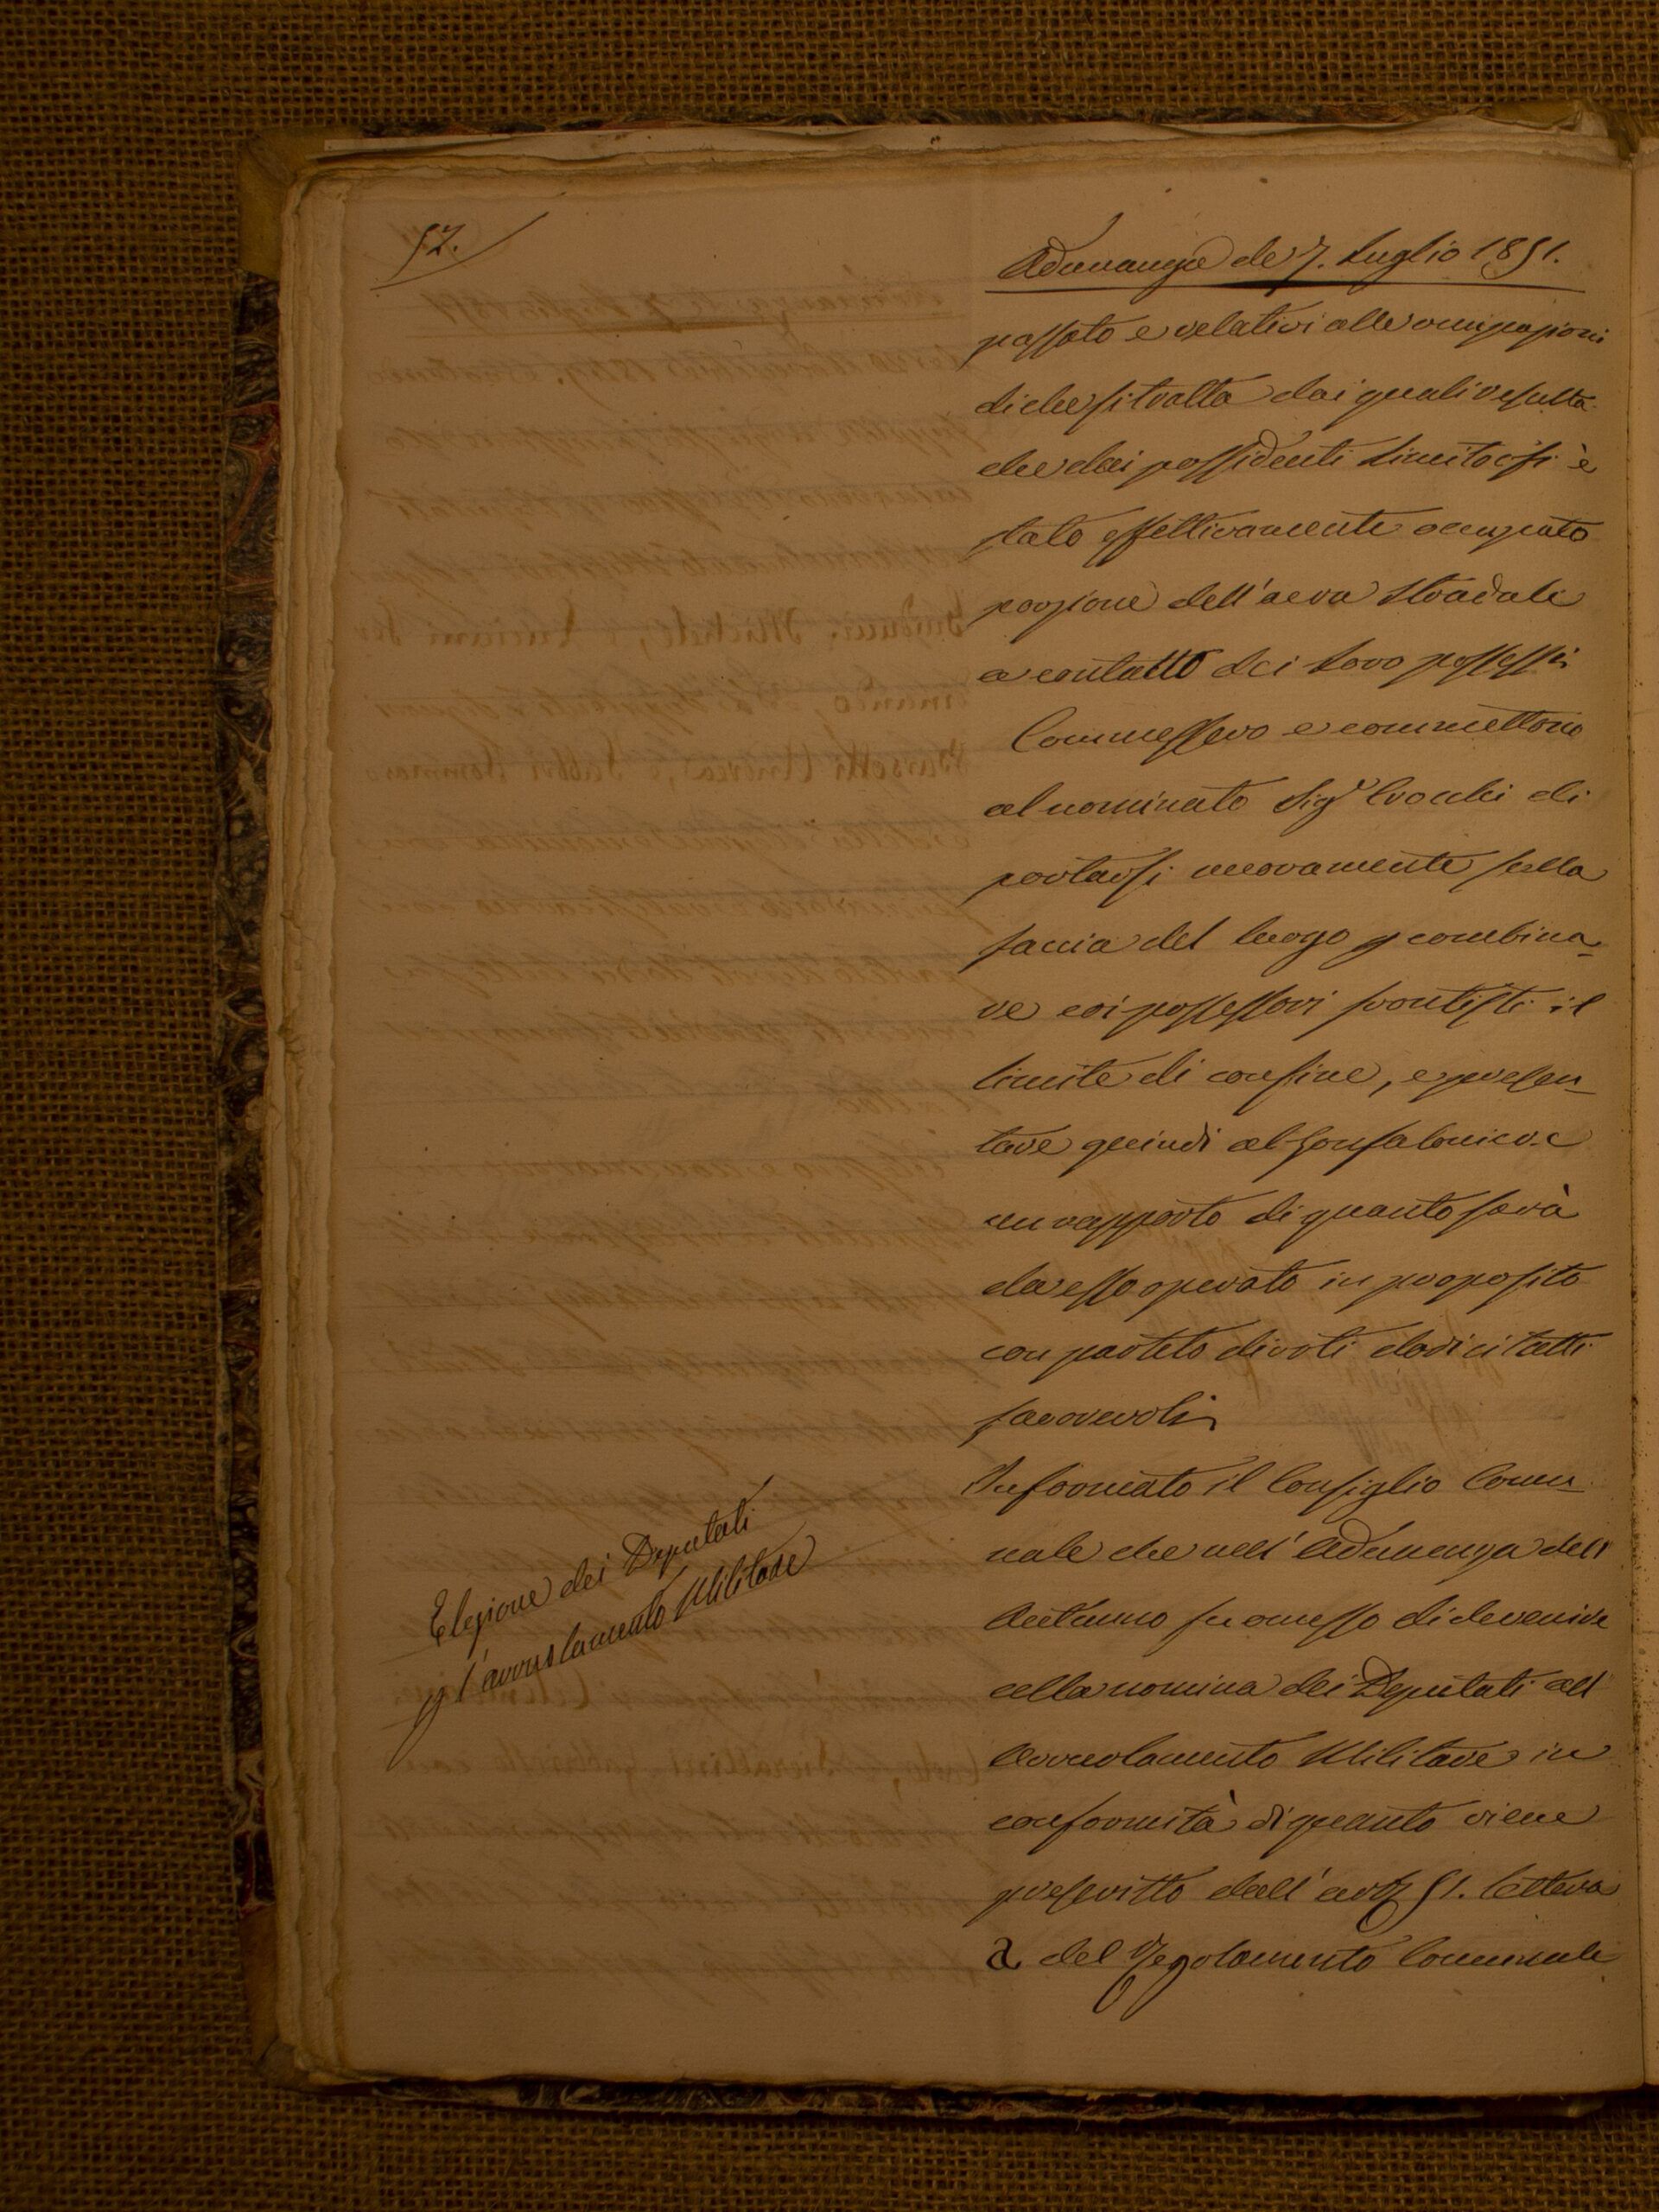 52.
Adunanza de' 7. Luglio 1851.
passato e relativi alle occupazioni
di che si tratta dai quali resulta
che dai possidenti limitrofi è
stato effettivamente occupato
porzione dell'area stradale
a contatto dei loro possessi
Commessero e commettono
al nominato Sigr Crocchi di
portarsi nuovamente sulla
faccia del luogo p combina-
re coi possessori frontisti il
limite di confine, e presen-
tare quindi al Gonfaloniere
un rapporto di quanto sarà
da esso operato in proposito
con partito di voti dodici tutti
favorevoli
Informato il Consiglio Comu-
nale che nell'Adunanza dell'
Autunno fu omesso di devenire
alla nomina dei Deputati all'
Arruolamento Militare in
conformità di quanto viene
prescritto dall'art 51. lettera
a del Regolamento Comunale
Elezione dei Deputati
p l'arruolamento Militare